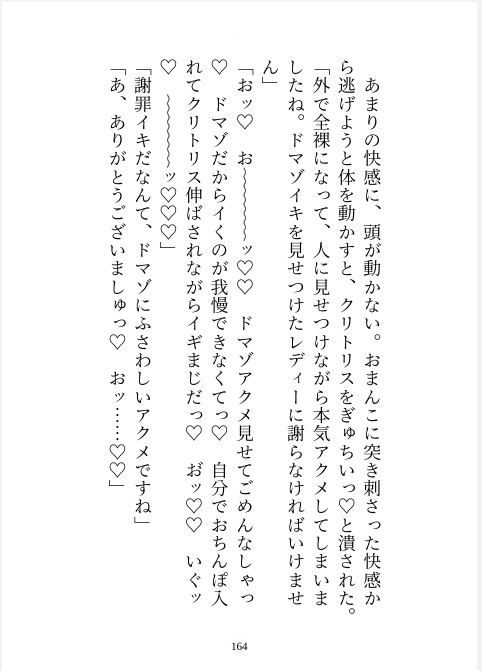 あまりの快感に、頭が動かない。おまんこに突き刺さった快感か
ら逃げようと体を動かすと、クリトリスをぎゅちいっ♡と潰された。
「外で全裸になって、人に見せつけながら本気アクメしてしまいま
したね。ドマゾイキを見せつけたレディーに謝らなければいけませ
ん」
「おッ♡　お〜〜〜〜〜ッ♡♡　ドマゾアクメ見せてごめんなしゃっ
♡　ドマゾだからイくのが我慢できなくてっ♡　自分でおちんぽ入
れてクリトリス伸ばされながらイギまじだっ♡　お゛ッ♡♡　いぐッ
♡　〜〜〜〜〜ッ♡♡♡」
「謝罪イキだなんて、ドマゾにふさわしいアクメですね」
「あ、ありがとうございましゅっ♡　おッ……♡♡」
164